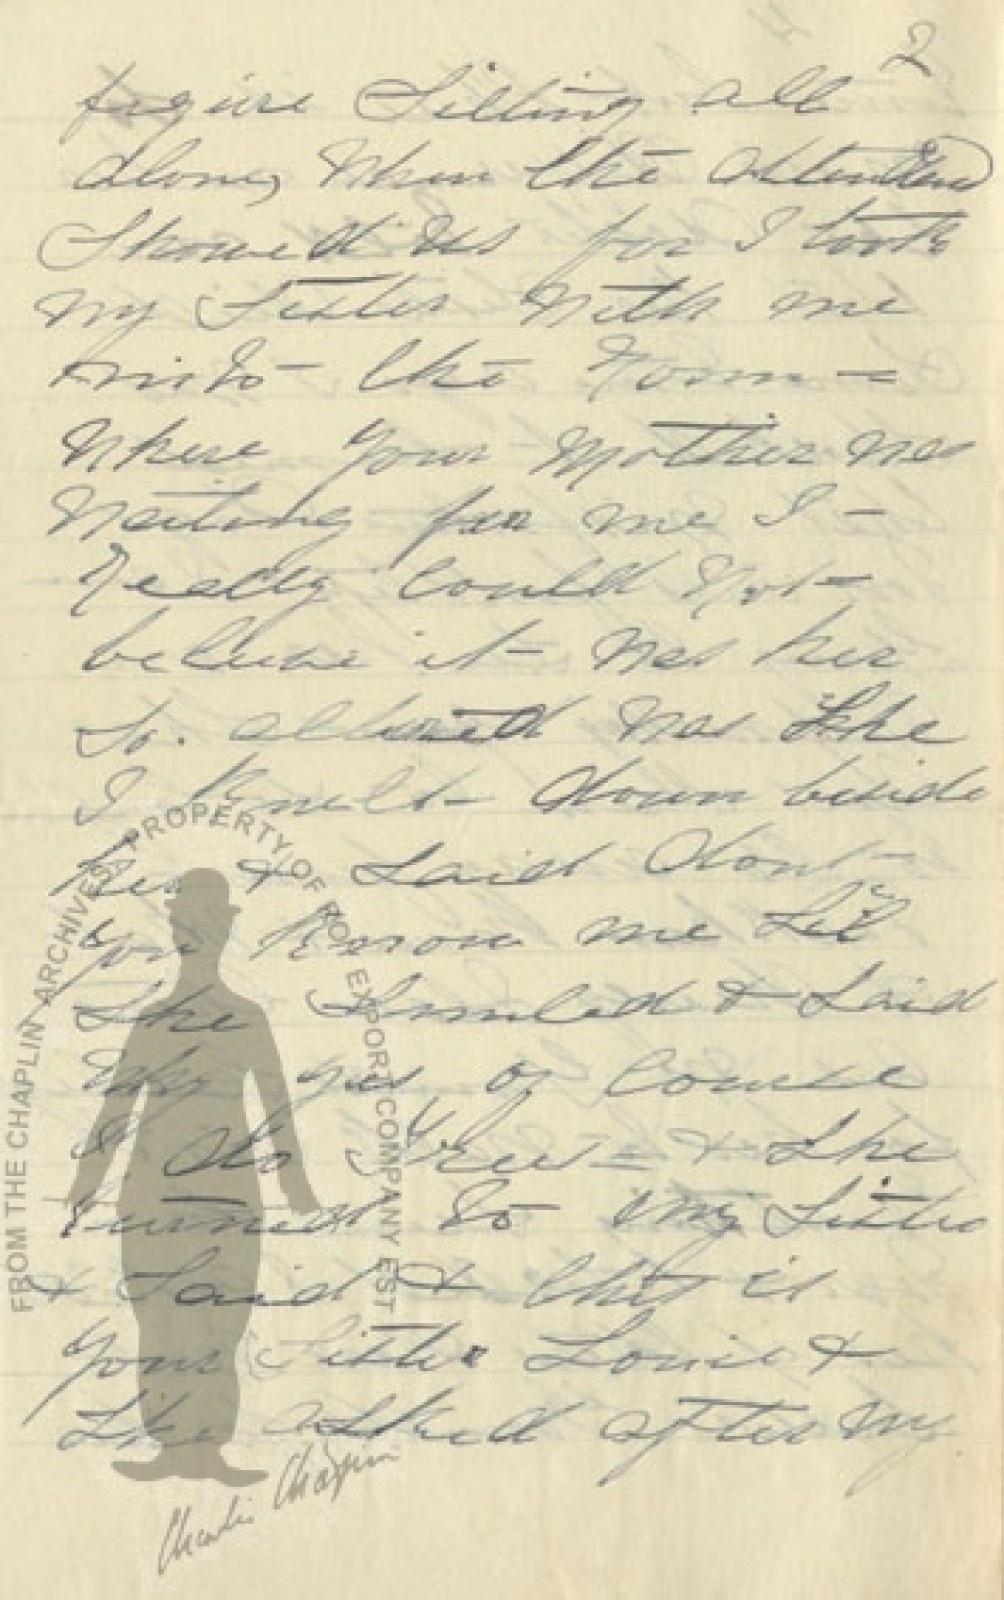 2
figure Sitting all
alone, When the attendend
Showed us for I took
my Sister With me
into – the Room –
Where your Mother Was
Waiting for me I –
Really Could Not –
beleive it – Was her
So. altered Was She
I Knelt – down beside
her & Said dont –
You Know me Lil
She Smiled & Said
Why yes, of Course
I do – & She
turned to my Sister
& Said & this is
Your Sister Louie &
She asked after my
FROM THE CHAPLIN ARCHIVES, PROPERTY OF ROY EXPORT COMPANY EST
Charlie Chaplin